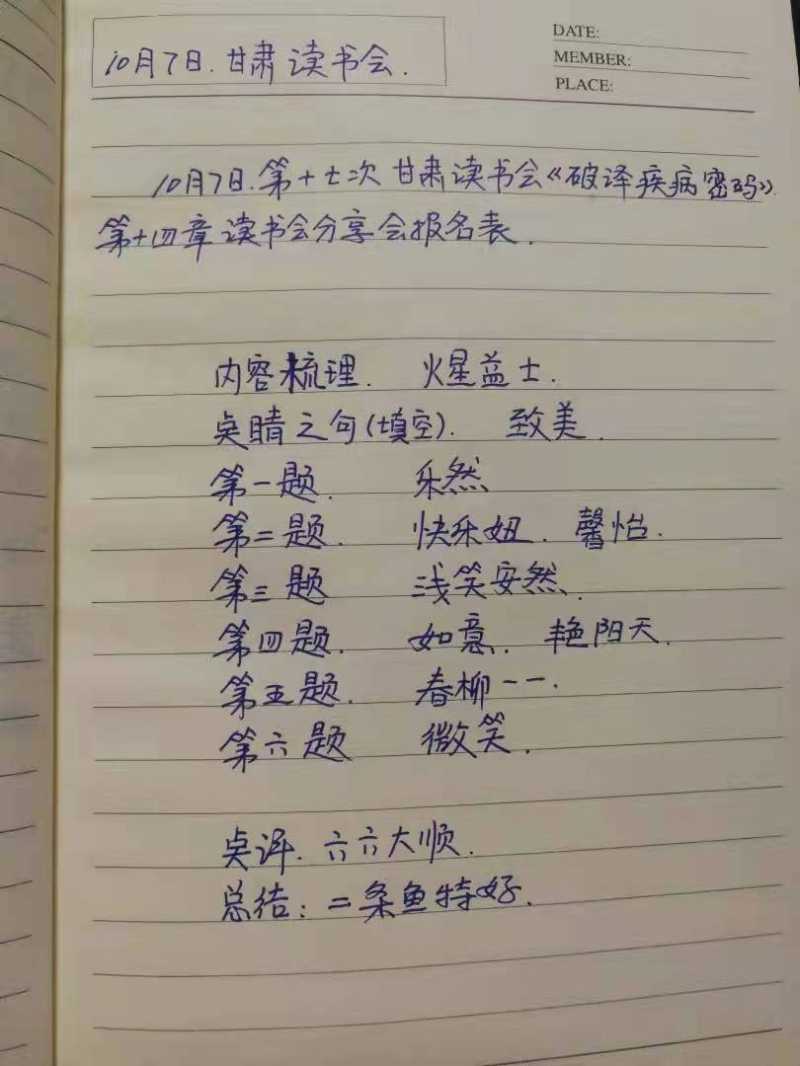 10月7日.甘肃读书会.
DATE:
MEMBER:
PLACE:
10月7日.第十七次甘肃读书会《破译疾病密码》
第十四章读书会分享会报名表.
内容梳理. 火星益士.
点睛之句(填空). 致美.
第一题. 乐然
第二题. 快乐妞. 馨怡.
第三题 浅笑安然.
第四题. 如意. 艳阳天.
第五题. 春柳一一.
第六题 微笑.
点评. 六六大顺.
总结: 二条鱼特好.